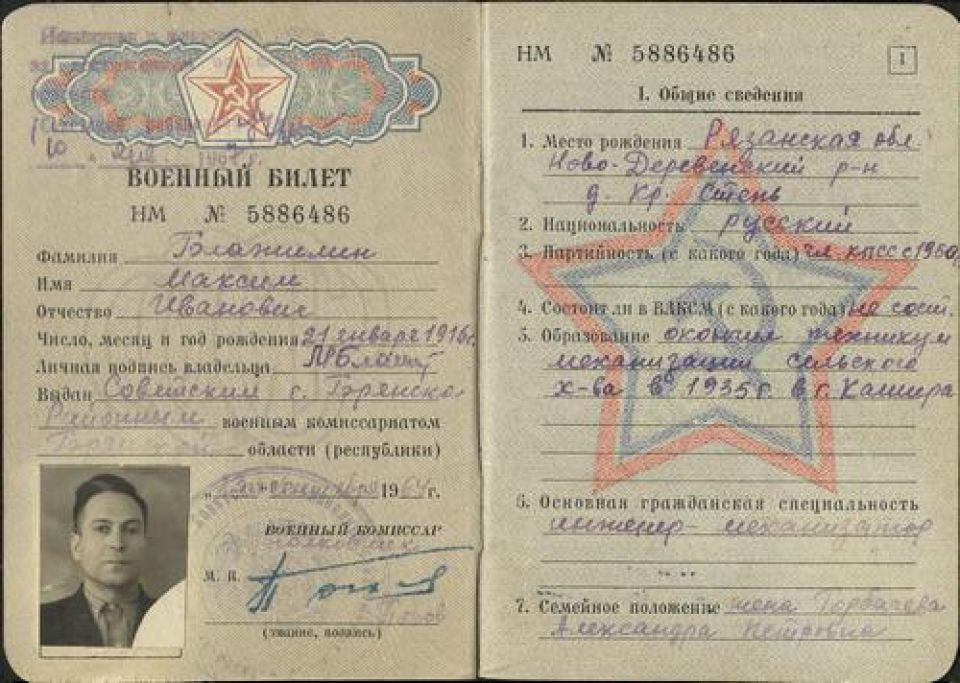 ВОЕННЫЙ БИЛЕТ
НМ № 5886486
Фамилия Блажилин
Имя Максим
Отчество Иванович
Число, месяц и год рождения 21 января 1916г.
Личная подпись владельца
Выдан Советским г. Брянска
Районным военным комиссариатом
области (республики)
сентября 1964 г.
ВОЕННЫЙ КОМИССАР
М. П.
Попов
(звание, подпись)
НМ № 5886486
1
I. Общие сведения
1. Место рождения Рязанская обл
Ново-Деревенский р-н
д. Кр. Степь
2. Национальность русский
3. Партийность (с какого года) чл КПСС с 1960
4. Состоит ли в ВЛКСМ (с какого года) не сост.
5. Образование окончил техникум
механизации сельского
х-ва в 1935 г в г. Кашира
6. Основная гражданская специальность
инженер-механизатор
7. Семейное положение жена Горбачева
Александра Петровна